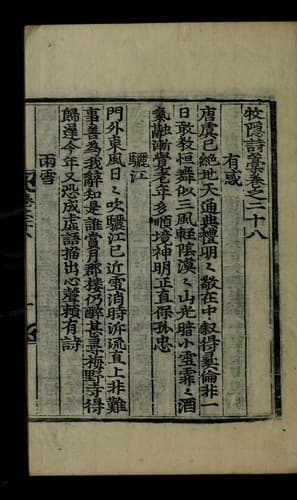 牧隱詩藁卷之二十八
有感
唐虞已絶地天通典禮明〻敬在中叙得彛倫非一
日敢敎恒舞似三風輕陰漠〻山光暗小雪霏〻酒
氣融漸覺老年多順境神明正直保孤忠
驪江
門外東風日〻吹驪江已近雪消時泝流直上非難
事善爲我辭知是誰賞月郡樓仍醉甚尋梅野寺得
歸遲今年又恐成虛語描出心聲賴有詩
雨雪